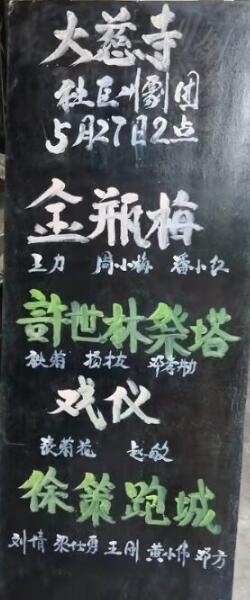 大慈寺
社区川剧团
5月27日2点
金瓶梅
王力 周小梅 潘小红
許世林祭塔
秋菊 杨 邓孝勤
戏仪
张菊花 赵敏
徐策跑城
刘情 梁仕勇 王刚 黄小伟 邓方